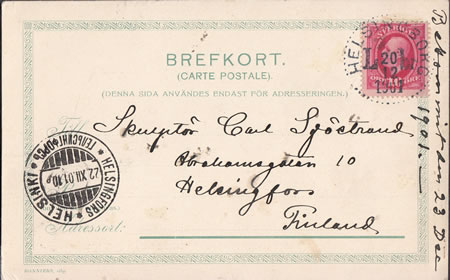 BREFKORT.
(CARTE POSTALE.)
(DENNA SIDA ANVÄNDES ENDAST FÖR ADRESSERINGEN.)
HELSINGBORG
L L
20
12
1901
Skulptör Carl Sjöstrand
Abrahamsgatan 10
Helsingfors
Finland
HELSINKI * HELSINGFORS * ГЕЛЬСИНГФОРСЪ
22.XII.01.10
Adressort:
Bekommit den 23 Dec.
1901.